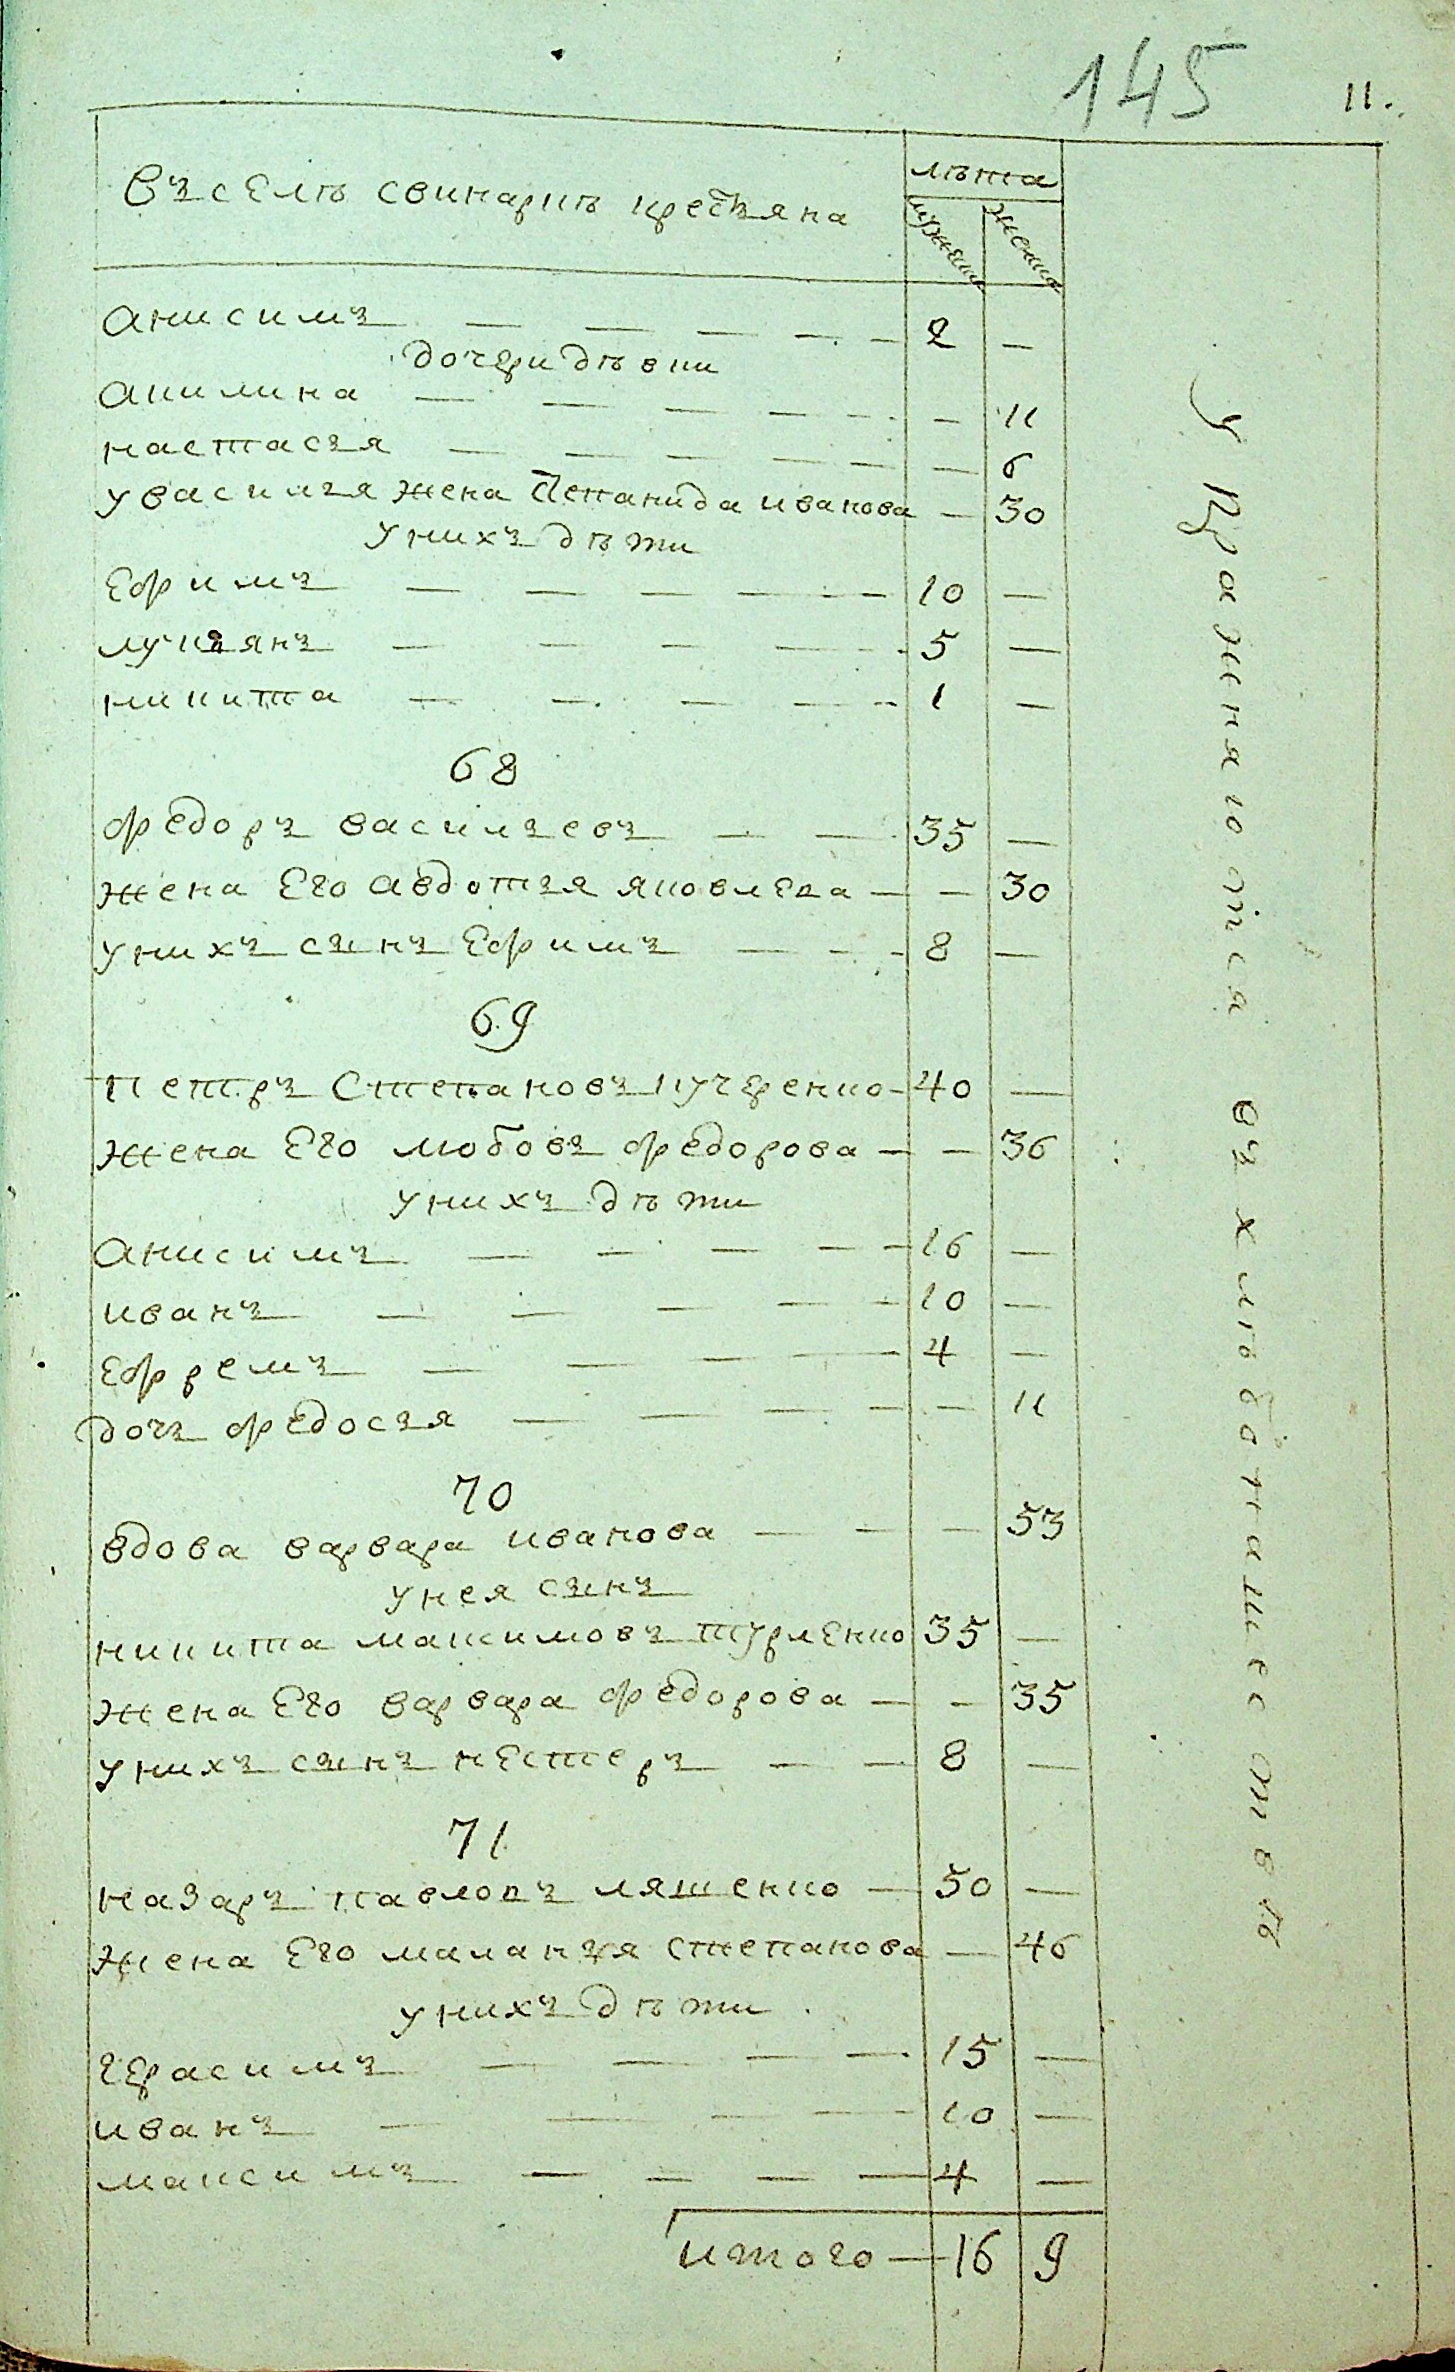 145
11.
Въ селѣ Свинарнѣ крестьяна
лѣта
мужеска
женска
Анисимъ — — — — — 2 —
Дочери дѣвки
Акилина — — — — — — 11
настасья — — — — — — 6
у василья жена Степанида иванова — 30
у нихъ дѣти
Ефимъ — — — — — 10 —
лукьянъ — — — — — 5 —
никита — — — — — 1 —
68
федоръ васильевъ — — 35 —
жена Его Авдотья яковлева — — 30
у нихъ сынъ Ефимъ — — — 8 —
69
Петръ Степановъ кучеренко — 40 —
жена Его любовь федорова — — 36
у нихъ дѣти
Анисимъ — — — — — 16 —
иванъ — — — — — 10 —
Ефремъ — — — — 4 —
Дочь федосья — — — — — 11
70
вдова варвара иванова — — — 53
у нея сынъ
никита максимовъ турленко 35 —
жена Его варвара федорова — — 35
у нихъ сынъ нестеръ — — 8 —
71
назаръ павловъ ляшенко — 50 —
жена Его маланья степанова — 46
у нихъ дѣти
герасимъ — — — — 15 —
иванъ — — — — 10 —
максимъ — — — — 4 —
итого — 16 9
Упражняются въ хлѣбопашествѣ